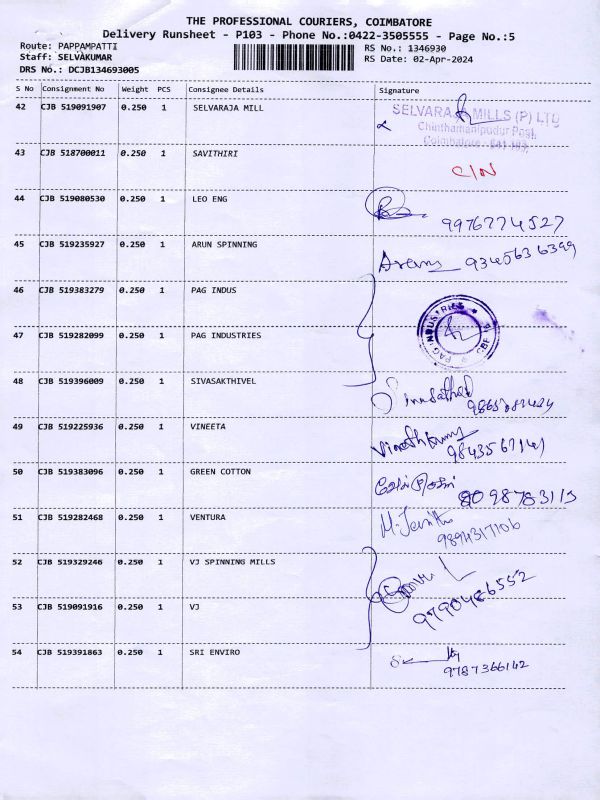 THE PROFESSIONAL COURIERS, COIMBATORE
Delivery Runsheet - P103 - Phone No.:0422-3505555 - Page No.:5
Route: PAPPAMPATTI
Staff: SELVAKUMAR
DRS No.: DCJB134693005
RS No.: 1346930
RS Date: 02-Apr-2024
S No Consignment No Weight PCS Consignee Details Signature
42 CJB 519091907 0.250 1 SELVARAJA MILL
SELVARAJA MILLS (P) LTD
Chinthamanipudur Post,
Coimbatore - 641 103.
43 CJB 518700011 0.250 1 SAVITHIRI C/N
44 CJB 519080530 0.250 1 LEO ENG 9976774527
45 CJB 519235927 0.250 1 ARUN SPINNING 9345636399
46 CJB 519383279 0.250 1 PAG INDUS
PAG INDUSTRIES
47 CJB 519282099 0.250 1 PAG INDUSTRIES
48 CJB 519396009 0.250 1 SIVASAKTHIVEL
49 CJB 519225936 0.250 1 VINEETA Vinothkumar
9843567141
50 CJB 519383096 0.250 1 GREEN COTTON
51 CJB 519282468 0.250 1 VENTURA
9894317106
52 CJB 519329246 0.250 1 VJ SPINNING MILLS
9790486552
53 CJB 519091916 0.250 1 VJ
54 CJB 519391863 0.250 1 SRI ENVIRO
9787366142